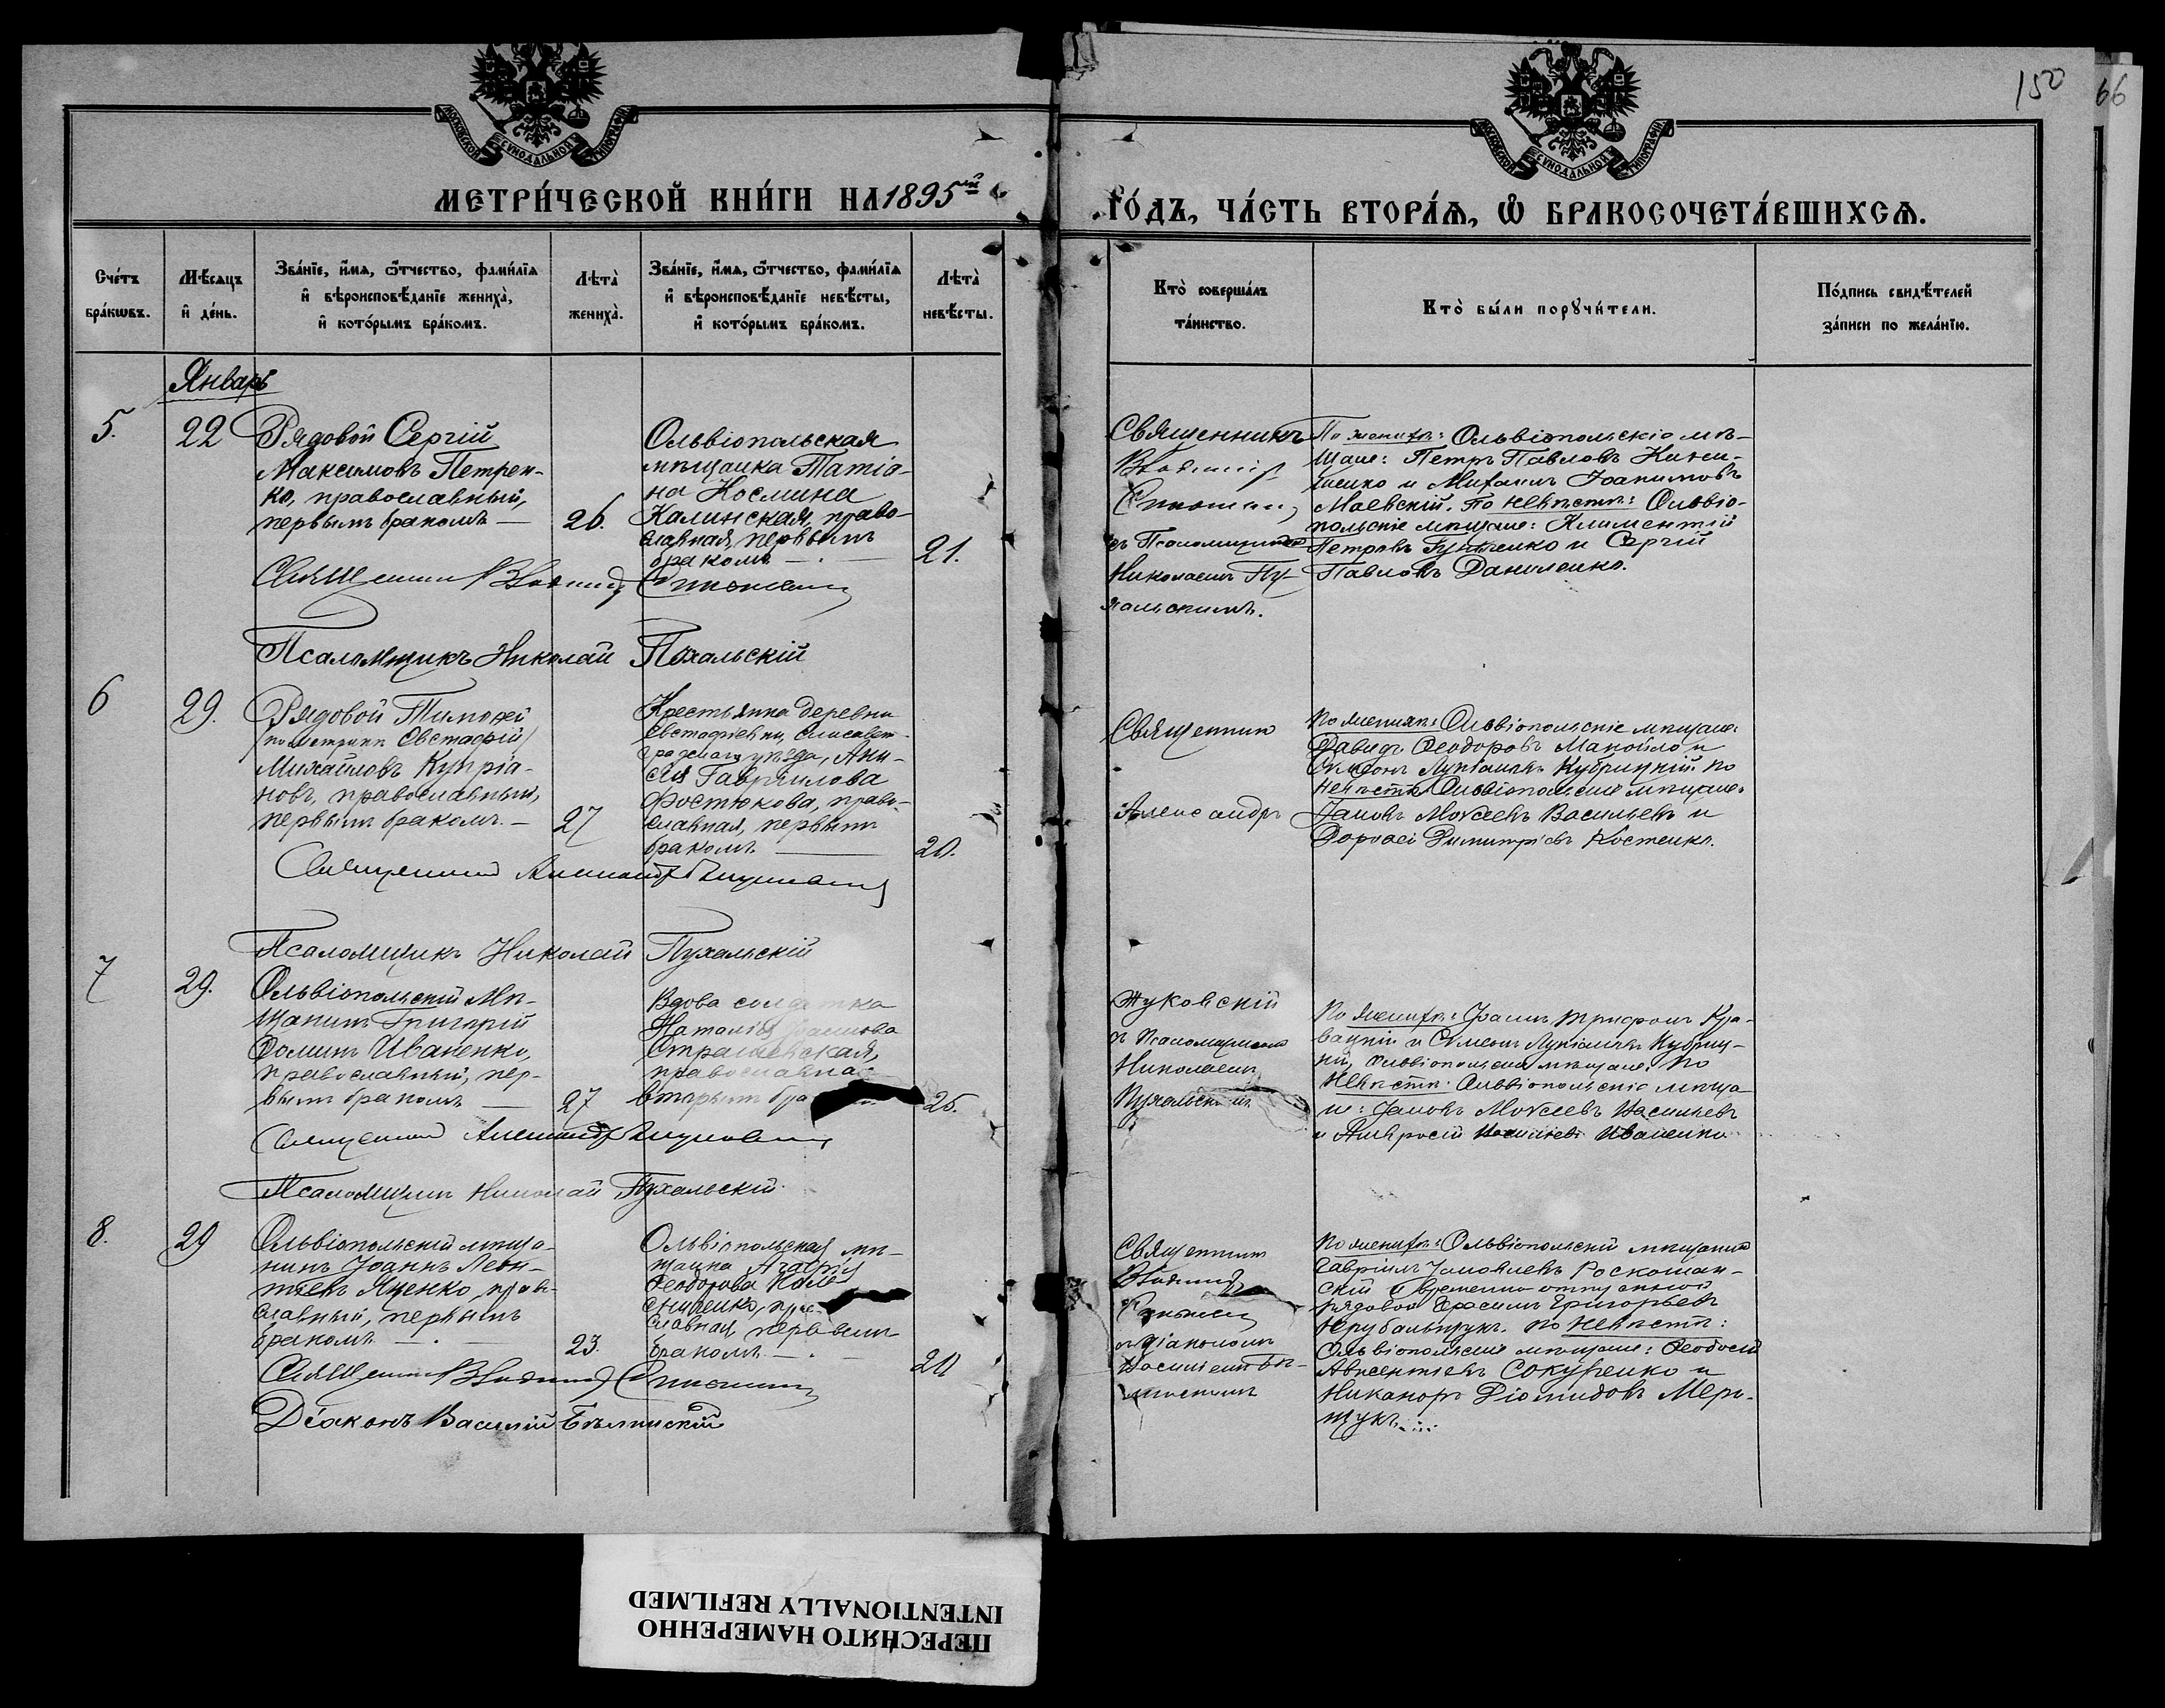 150
66
МОСКОВСКОЙ СѴНОДАЛЬНОЙ ТИПОГРАФІИ
МОСКОВСКОЙ СѴНОДАЛЬНОЙ ТИПОГРАФІИ
МЕТРИ́ЧЕСКОЙ КНИ́ГИ НА 1895й
ГО́ДЪ, ЧА́СТЬ ВТОРА́Ѧ, Ѡ҆ БРАКОСОЧЕТА́ВШИХСѦ.
Сче́тъ
бра́кѡвъ.
Мѣ́сѧцъ
и҆ де́нь.
Зва́нїе, и҆́мѧ, ѻ҆́тчество, фами́лїѧ
и҆ вѣроисповѣ́данїе жениха̀,
и҆ кото́рымъ бра́комъ.
Лѣта̀
жениха̀.
Зва́нїе, и҆́мѧ, ѻ҆́тчество, фами́лїѧ
и҆ вѣроисповѣ́данїе невѣ́сты,
и҆ кото́рымъ бра́комъ.
Лѣта̀
невѣ́сты.
Кто̀ соверша́лъ
та́инство.
Кто̀ бы́ли порꙋчи́тели.
По́дпись свидѣ́телей
за́писи по жела́нїю.
Январь
5.
22
Рядовой Сергій
Максимовъ Петрен-
ко, православный,
первымъ бракомъ —
26.
Ольвіопольская
мѣщанка Татіа-
на Космина
Калинская, право-
славная, первымъ
бракомъ —
21.
Священникъ
Владимір
съ Псаломщикомъ
Николаемъ Пу-
хальскимъ.
По женихѣ: Ольвіопольскіе мѣ-
щане: Петръ Павловъ
и Михаилъ Іоакимовъ
Маевскій. По невѣстѣ: Ольвіо-
польскіе мѣщане: Климентій
Петровъ и Сергій
Павловъ Даниленко.
Священникъ Владимір
Псаломщикъ Николай Пухальскій
6
29.
Рядовой Тимофей
(по метрикѣ Евстафій)
Михайловъ Купріа-
новъ, православный,
первымъ бракомъ. —
27
Крестьянка деревни
Евстафіевки, Елисавет-
градскаго уѣзда, Ани-
сія Гавріилова
Фостюкова, право-
славная, первымъ
бракомъ —
20.
Священникъ
Александръ
По женихѣ: Ольвіопольскіе мѣщане:
Давидъ Ѳеодоровъ Манойло и
Симеонъ Лукіановъ Кубрицкій. По
невѣстѣ Ольвіопольскіе мѣщане:
Іаковъ Моѵсеевъ Васильевъ и
Дороѳей Димитріевъ Костенко.
Священникъ Александръ
Псаломщикъ Николай Пухальскій
7
29.
Ольвіопольскій мѣ-
щанинъ Григорій
Ѳоминъ Иваненко,
православный, пер-
вымъ бракомъ —
27
Вдова солдатка
Наталія
Страшевская,
православная
вторымъ
25.
Жуковскій
съ Псаломщикомъ
Николаемъ
Пухальскимъ
По женихѣ: Іоаннъ Трифоновъ Кра-
вацкій и Симеонъ Лукіановъ Кубриц-
кій, Ольвіопольскіе мѣщане. По
невѣстѣ: Ольвіопольскіе мѣща-
не: Іаковъ Моѵсеевъ Васильевъ
и Амвросій Васильевъ Иваненко
Священникъ Александръ
Псаломщикъ Николай Пухальскій
8.
29
Ольвіопольскій мѣща-
нинъ Іоаннъ Леон-
тіевъ Яценко, право-
славный, первымъ
бракомъ —
23.
Ольвіопольская мѣ-
щанка Агафія
Ѳеодорова
славная, первымъ
бракомъ —
20
Священникъ
Владимір
и діакономъ
Василіемъ Бѣ-
линскимъ
По женихѣ: Ольвіопольскій мѣщанинъ
Гавріилъ Іаковлевъ Роскошан-
скій и временно отпускной
рядовой Герасимъ Григорьевъ
Нерубальщукъ. По невѣстѣ:
Ольвіопольскіе мѣщане: Ѳеодосій
Авксентіевъ Сокуренко и
Никаноръ Діомидовъ Мерь-
щукъ.
Священникъ Владимір
Діаконъ Василій Бѣлинскій
ПЕРЕСНЯТО НАМЕРЕННО
INTENTIONALLY REFILMED